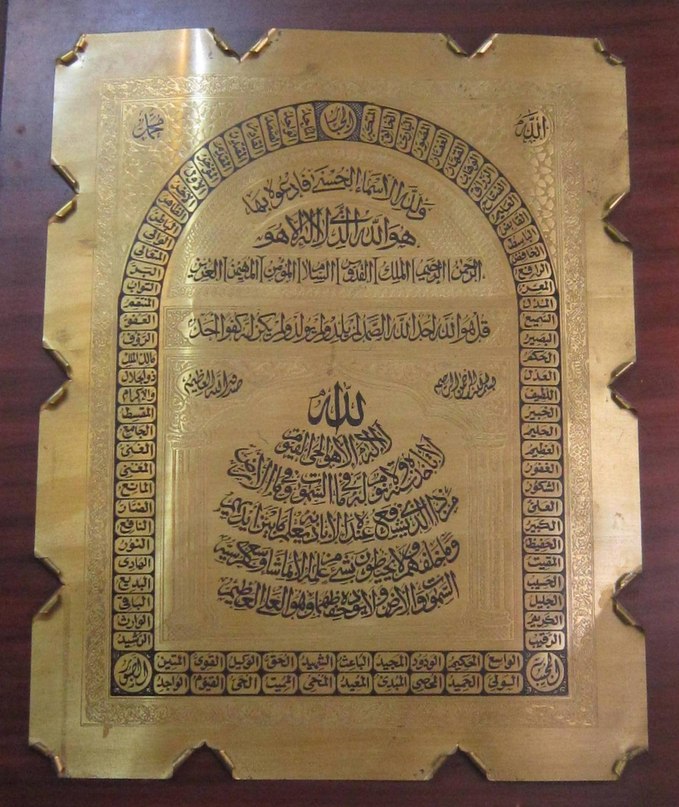 الله
محمد
الجبار
المتكبر
الخالق
البارئ
المصور
الغفار
القهار
الوهاب
الرزاق
الفتاح
العليم
القابض
الباسط
الخافض
الرافع
المعز
المذل
السميع
البصير
الحكم
العدل
اللطيف
الخبير
الحليم
العظيم
الغفور
الشكور
العلي
الكبير
الحفيظ
المقيت
الحسيب
الجليل
الكريم
الرقيب
المجيب
الواسع الحكيم الودود المجيد الباعث الشهيد الحق الوكيل القوي المتين
الولي الحميد المحصي المبدئ المعيد المحيي المميت الحي القيوم الواجد
القادر
المقتدر
المقدم
المؤخر
الأول
الآخر
الظاهر
الباطن
الوالي
المتعالي
البر
التواب
المنتقم
العفو
الرؤف
مالك الملك
ذو الجلال
والإكرام
المقسط
الجامع
الغني
المغني
المانع
الضار
النافع
النور
الهادي
البديع
الباقي
الوارث
الرشيد
الصبور
ولله الأسماء الحسنى فادعوه بها
هو الله الذي لا إله إلا هو
الرحمن الرحيم الملك القدوس السلام المؤمن المهيمن العزيز
قل هو الله أحد الله الصمد لم يلد ولم يولد ولم يكن له كفوا أحد
بسم الله الرحمن الرحيم
صدق الله العظيم
الله
لا إله إلا هو الحي القيوم
لا تأخذه سنة ولا نوم له ما في السموات وما في الأرض
من ذا الذي يشفع عنده إلا بإذنه يعلم ما بين أيديهم
وما خلفهم ولا يحيطون بشيء من علمه إلا بما شاء وسع كرسيه
السموات والأرض ولا يؤده حفظهما وهو العلي العظيم